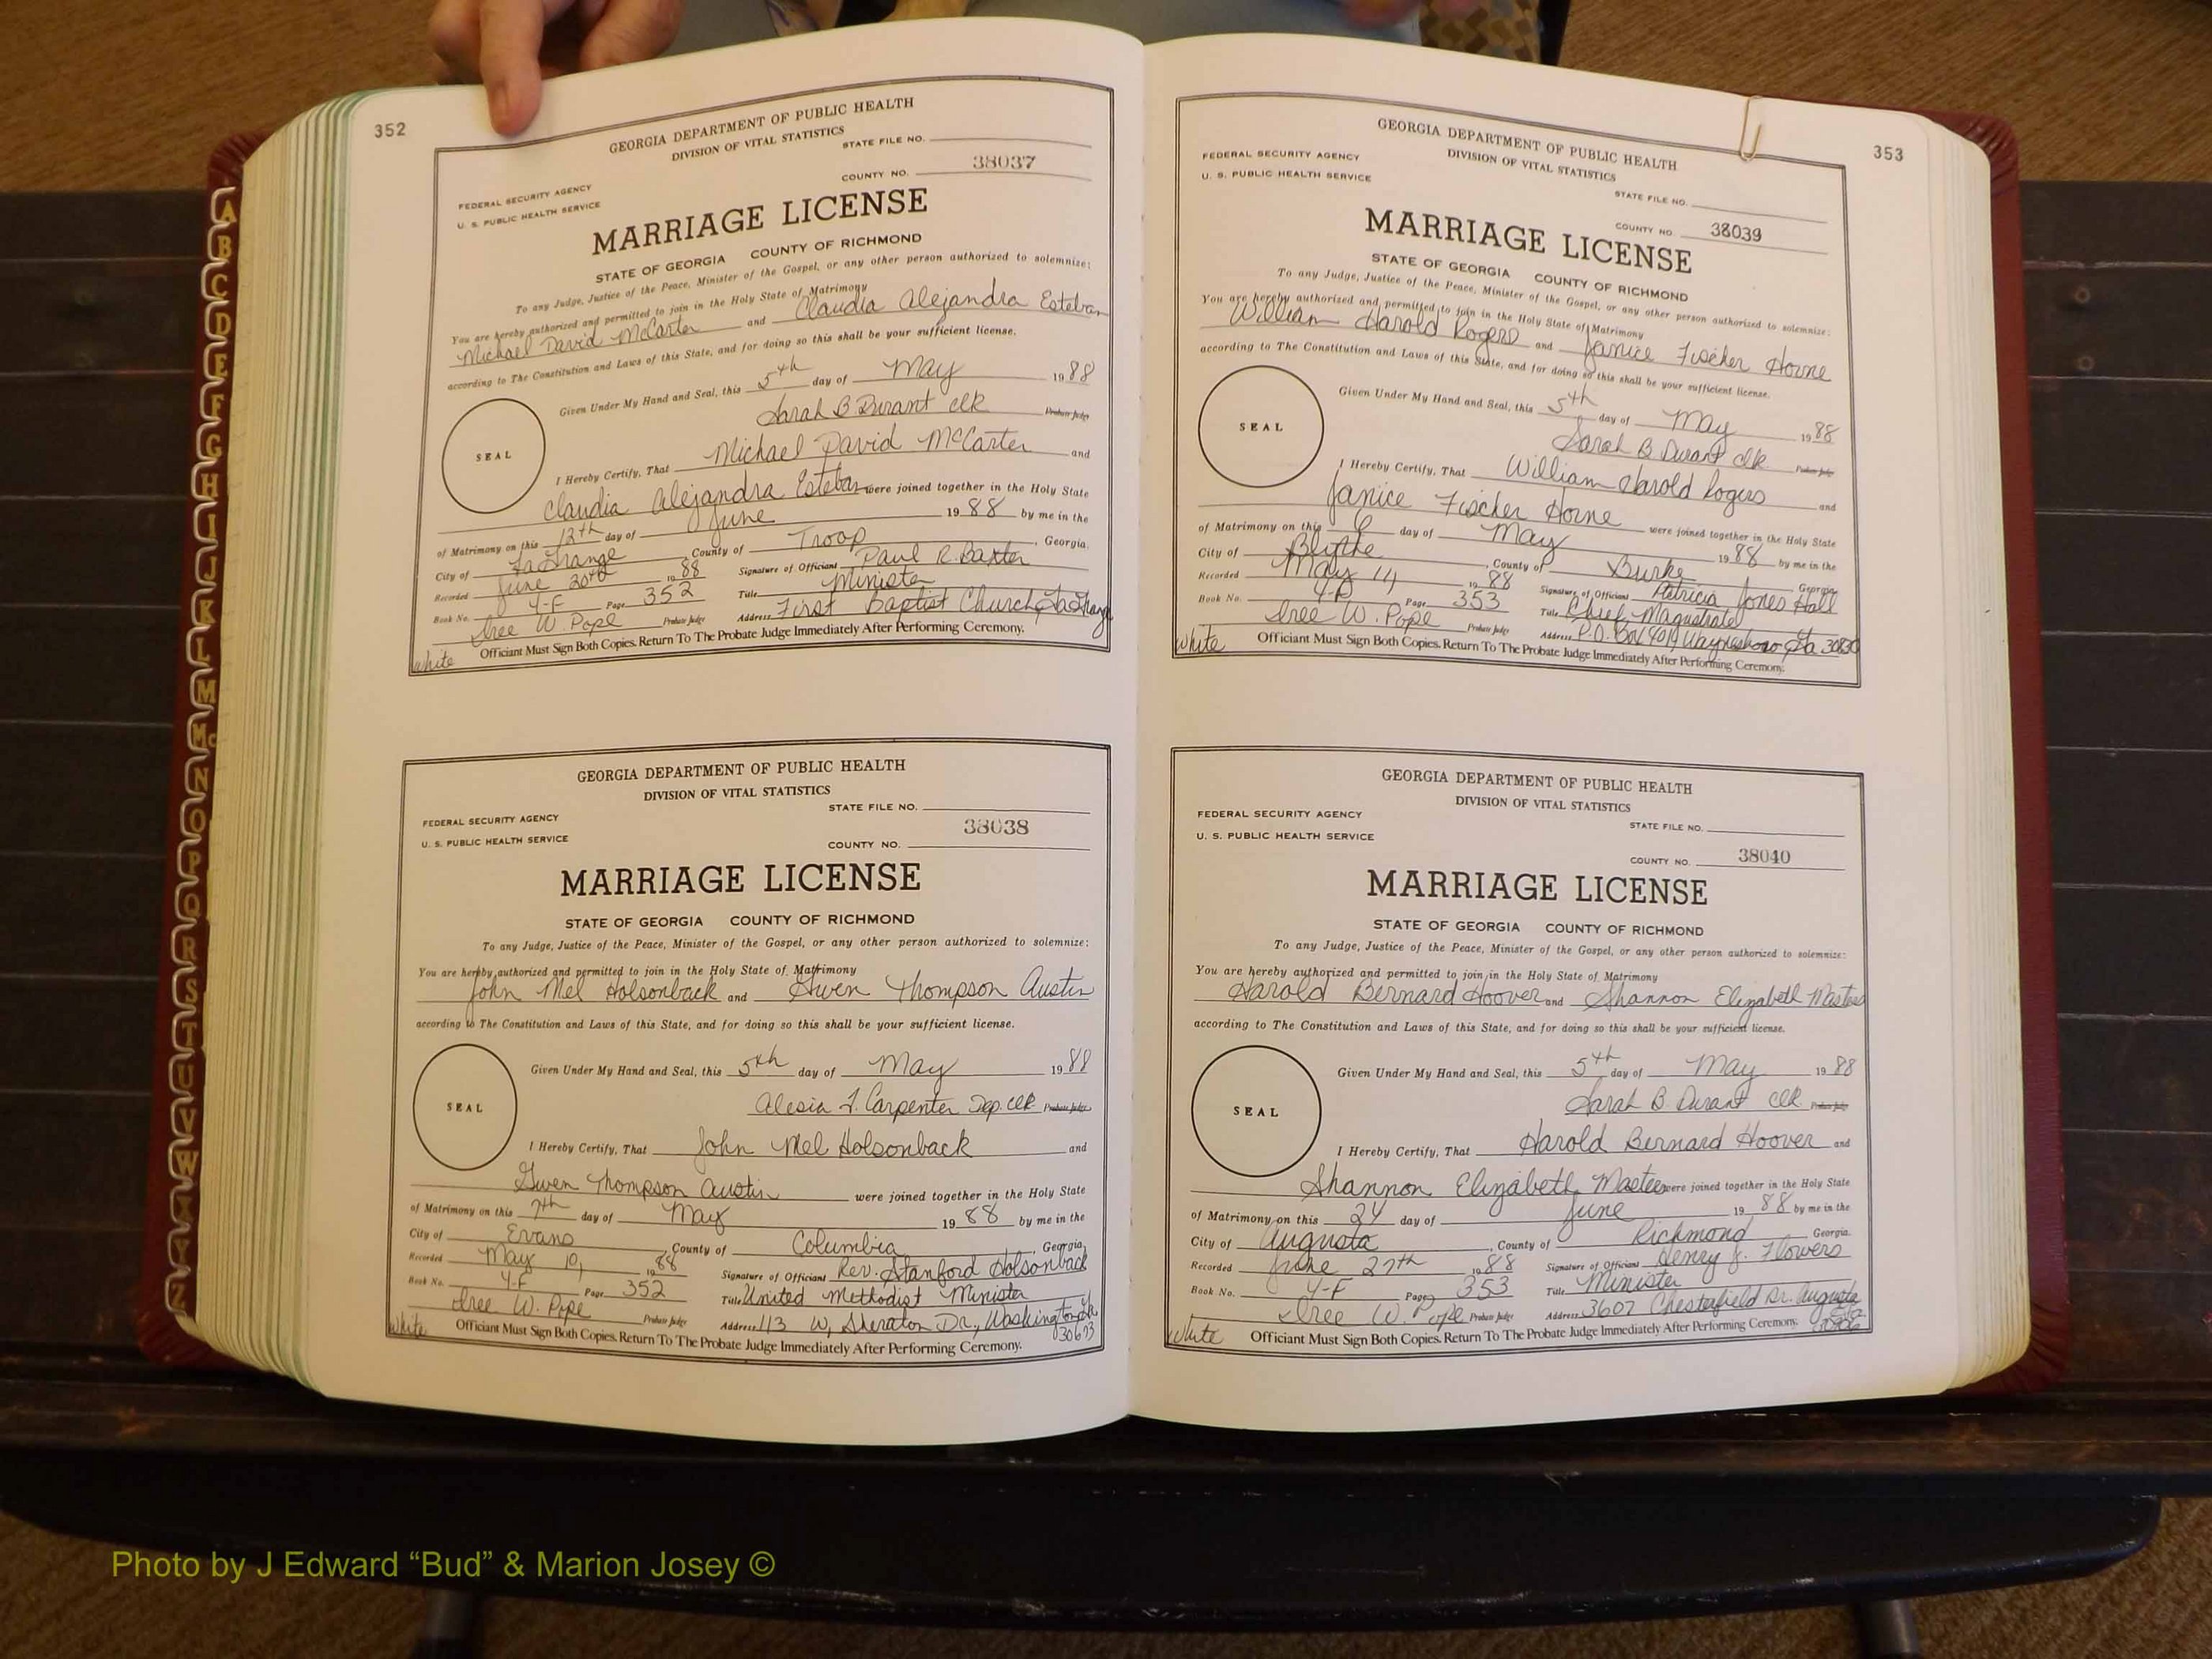 352
GEORGIA DEPARTMENT OF PUBLIC HEALTH
DIVISION OF VITAL STATISTICS
STATE FILE NO.
FEDERAL SECURITY AGENCY
U. S. PUBLIC HEALTH SERVICE
COUNTY NO. 38037
MARRIAGE LICENSE
STATE OF GEORGIA COUNTY OF RICHMOND
To any Judge, Justice of the Peace, Minister of the Gospel, or any other person authorized to solemnize:
You are hereby authorized and permitted to join in the Holy State of Matrimony
Michael David McCarter and Claudia Alejandra Esteban
according to The Constitution and Laws of this State, and for doing so this shall be your sufficient license.
Given Under My Hand and Seal, this 5th day of May 1988
Sarah B Durant clk Probate Judge
SEAL
I Hereby Certify, That Michael David McCarter and
Claudia Alejandra Esteban were joined together in the Holy State
of Matrimony on this 12th day of June 1988 by me in the
City of LaGrange, County of Troop, Georgia.
Recorded June 20th 1988 Signature of Officiant Paul R. Baxter
Book No. 4-F Page 352 Title Minister
Iree W. Pope Probate Judge Address First Baptist Church, LaGrange
White Officiant Must Sign Both Copies. Return To The Probate Judge Immediately After Performing Ceremony.
GEORGIA DEPARTMENT OF PUBLIC HEALTH
DIVISION OF VITAL STATISTICS
STATE FILE NO.
FEDERAL SECURITY AGENCY
U. S. PUBLIC HEALTH SERVICE
COUNTY NO. 38038
MARRIAGE LICENSE
STATE OF GEORGIA COUNTY OF RICHMOND
To any Judge, Justice of the Peace, Minister of the Gospel, or any other person authorized to solemnize:
You are hereby authorized and permitted to join in the Holy State of Matrimony
John Mel Holsonback and Gwen Thompson Austin
according to The Constitution and Laws of this State, and for doing so this shall be your sufficient license.
Given Under My Hand and Seal, this 5th day of May 1988
Alesia J. Carpenter Dep. clk Probate Judge
SEAL
I Hereby Certify, That John Mel Holsonback and
Gwen Thompson Austin were joined together in the Holy State
of Matrimony on this 7th day of May 1988 by me in the
City of Evans, County of Columbia, Georgia.
Recorded May 10, 1988 Signature of Officiant Rev. Stanford Holsonback
Book No. 4-F Page 352 Title United Methodist Minister
Iree W. Pope Probate Judge Address 113 W. Sheraton Dr., Washington, Ga
30673
White Officiant Must Sign Both Copies. Return To The Probate Judge Immediately After Performing Ceremony.
353
GEORGIA DEPARTMENT OF PUBLIC HEALTH
DIVISION OF VITAL STATISTICS
FEDERAL SECURITY AGENCY
U. S. PUBLIC HEALTH SERVICE
STATE FILE NO.
COUNTY NO. 38039
MARRIAGE LICENSE
STATE OF GEORGIA COUNTY OF RICHMOND
To any Judge, Justice of the Peace, Minister of the Gospel, or any other person authorized to solemnize:
You are hereby authorized and permitted to join in the Holy State of Matrimony
William Harold Rogers and Janice Fischer Horne
according to The Constitution and Laws of this State, and for doing so this shall be your sufficient license.
Given Under My Hand and Seal, this 5th day of May 1988
Sarah B. Durant clk Probate Judge
SEAL
I Hereby Certify, That William Harold Rogers and
Janice Fischer Horne were joined together in the Holy State
of Matrimony on this 6 day of May 1988 by me in the
City of Blythe, County of Burke Georgia.
Recorded May 14 1988 Signature of Officiant Patricia Jones Hall
Book No. 4-F Page 353 Title Chief Magistrate
Iree W. Pope Probate Judge Address P.O. Box 401, Waynesboro Ga 30830
White Officiant Must Sign Both Copies. Return To The Probate Judge Immediately After Performing Ceremony.
GEORGIA DEPARTMENT OF PUBLIC HEALTH
DIVISION OF VITAL STATISTICS
FEDERAL SECURITY AGENCY
U. S. PUBLIC HEALTH SERVICE
STATE FILE NO.
COUNTY NO. 38040
MARRIAGE LICENSE
STATE OF GEORGIA COUNTY OF RICHMOND
To any Judge, Justice of the Peace, Minister of the Gospel, or any other person authorized to solemnize:
You are hereby authorized and permitted to join in the Holy State of Matrimony
Harold Bernard Hoover and Shannon Elizabeth Masters
according to The Constitution and Laws of this State, and for doing so this shall be your sufficient license.
Given Under My Hand and Seal, this 5th day of May 1988
Sarah B. Durant clk Probate Judge
SEAL
I Hereby Certify, That Harold Bernard Hoover and
Shannon Elizabeth Masters were joined together in the Holy State
of Matrimony on this 24 day of June 1988 by me in the
City of Augusta, County of Richmond Georgia.
Recorded June 27th 1988 Signature of Officiant Henry J. Flowers
Book No. 4-F Page 353 Title Minister
Iree W. Pope Probate Judge Address 3607 Chesterfield Dr. Augusta
Ga. 30906
White Officiant Must Sign Both Copies. Return To The Probate Judge Immediately After Performing Ceremony.
A
B
C
D
E
F
G
H
I
J
K
L
M
Mc
N
O
P
Q
R
S
T
U
V
W
X
Y
Z
Photo by J Edward “Bud” & Marion Josey ©